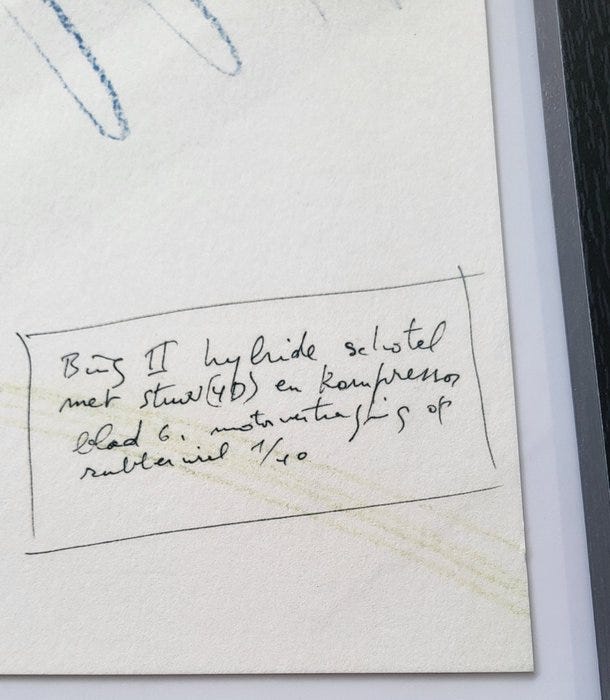 Bing II hybride schotel
met stuur(4D) en kompressor
blad 6. motorvertraging op
rubberwiel 1/40